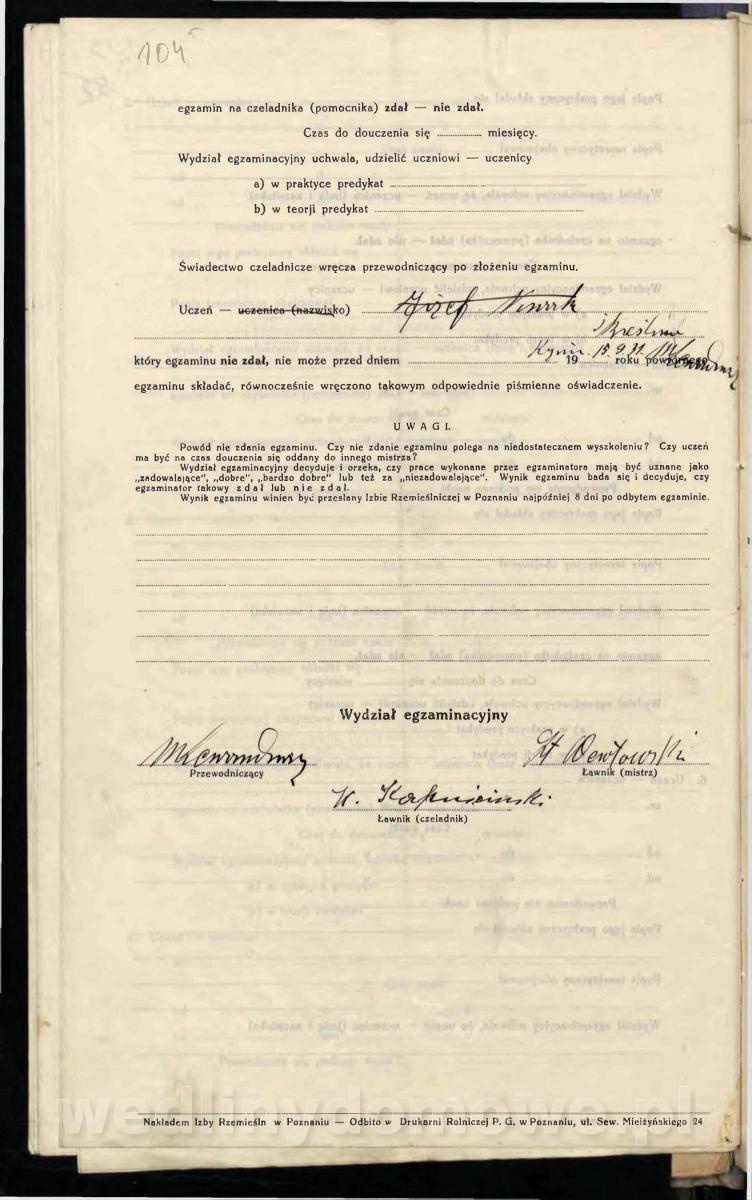 104
egzamin na czeladnika (pomocnika) zdał — nie zdał.
Czas do douczenia się ............... miesięcy.
Wydział egzaminacyjny uchwala, udzielić uczniowi — uczenicy
a) w praktyce predykat
b) w teorji predykat
Świadectwo czeladnicze wręcza przewodniczący po złożeniu egzaminu.
Uczeń — uczenica (nazwisko) Józef
Kcynia 15.9.31.
który egzaminu nie zdał, nie może przed dniem ............... 19 roku powtórnego
egzaminu składać, równocześnie wręczono takowym odpowiednie piśmienne oświadczenie.
UWAGI.
Powód nie zdania egzaminu. Czy nie zdanie egzaminu polega na niedostatecznem wyszkoleniu? Czy uczeń
ma być na czas douczenia się oddany do innego mistrza?
Wydział egzaminacyjny decyduje i orzeka, czy prace wykonane przez egzaminatora mają być uznane jako
„zadowalające", „dobre", „bardzo dobre" lub też za „niezadowalające". Wynik egzaminu bada się i decyduje, czy
egzaminator takowy zdał lub nie zdał.
Wynik egzaminu winien być przesłany Izbie Rzemieślniczej w Poznaniu najpóźniej 8 dni po odbytem egzaminie.
Wydział egzaminacyjny
St Dewłowski
Przewodniczący
Ławnik (mistrz)
W.
Ławnik (czeladnik)
wedlinydomowe.pl
Nakładem Izby Rzemieśln w Poznaniu — Odbito w Drukarni Rolniczej P. G. w Poznaniu, ul. Sew. Mielżyńskiego 24